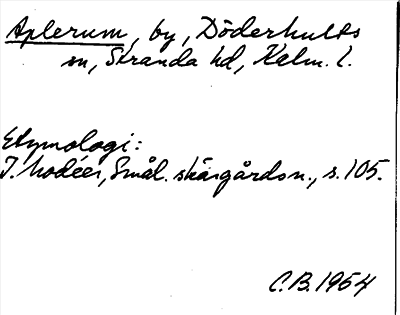 Aplerum, by, Döderhults
sn, Stranda hd, Kalm. l.
Etymologi:
I. Modéer, Smål. skärgårdsn., s. 105.
C.B. 1954